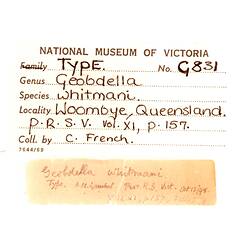 NATIONAL MUSEUM OF VICTORIA
Family TYPE. No. G831
Genus Geobdella
Species whitmani.
Locality Woombye, Queensland.
P. R. S. V. Vol. XI, p. 157.
Coll. by C. French.
7644/69
Geobdella whitmani
Type. Proc. R.S. Vict.